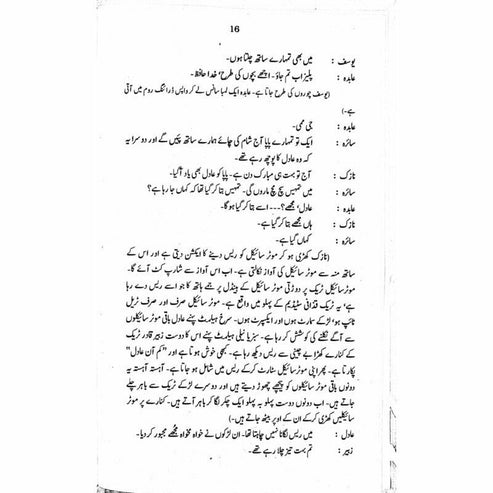 16
یوسف : میں بھی تمہارے ساتھ چلتا ہوں۔
عابدہ : پلیز اب تم جاؤ۔ اچھے بچوں کی طرح، خدا حافظ۔
(یوسف چوروں کی طرح جاتا ہے۔ عابدہ ایک لمبا سانس لے کر واپس ڈرائنگ روم میں آتی
ہے۔)
عابدہ : جی ممی۔
سائرہ : ایک تو تمہارے پاپا آج شام کی چائے ہمارے ساتھ پئیں گے اور دوسرا یہ
کہ وہ عادل کا پوچھ رہے تھے۔
نازک : آج تو بہت ہی مبارک دن ہے۔ پاپا کو عادل بھی یاد آگیا۔
سائرہ : میں تمہیں سچ مچ ماروں گی۔ تمہیں بتا کر گیا تھا کہ کہاں جا رہا ہے؟
عابدہ : عادل، مجھے؟--- اسے بتا کر گیا ہوگا۔
نازک : ہاں مجھے بتا کر گیا ہے۔
سائرہ : کہاں گیا ہے۔
(نازک کھڑی ہو کر موٹر سائیکل کو ریس دینے کا ایکشن دیتی ہے اور اس کے
ساتھ منہ سے موٹر سائیکل کی آواز نکالتی ہے۔ اب اس آواز سے شارپ کٹ آئے گا۔
موٹر سائیکل ٹریک پر دوڑتی موٹر سائیکل کے ہینڈل پر جمے ہاتھ کا جو اسے ریس دے رہا
ہے، یہ ٹریک قذافی سٹیڈیم کے پہلو میں واقع ہے۔ موٹر سائیکل صرف اور صرف ٹریل
ٹائپ ہو، لڑکے سمارٹ ہوں اور ایکسپرٹ ہوں۔ سرخ ہیلمٹ پہنے عادل باقی موٹر سائیکلوں
سے آگے نکلنے کی کوشش کر رہا ہے۔ سبز یا نیلی ہیلمٹ پہنے اس کا دوست زبیر قادر ٹریک
کے کنارے کھڑا بے چینی سے ریس دیکھ رہا ہے۔ کبھی خوش ہوتا ہے اور "کم آن عادل"
پکارتا ہے۔ پھر اپنی موٹر سائیکل سٹارٹ کرکے ریس میں شامل ہو جاتا ہے۔ آہستہ آہستہ یہ
دونوں باقی موٹر سائیکلوں کو پیچھے چھوڑ دیتے ہیں اور دوسرے لڑکے ٹریک سے باہر چلے
جاتے ہیں۔ اب دونوں دوست پہلو بہ پہلو ایک چکر لگا کر باہر آتے ہیں۔ کنارے پر موٹر
سائیکلیں کھڑی کرکے ان کے اوپر بیٹھ جاتے ہیں۔)
عادل : میں ریس لگانا نہیں چاہتا تھا۔ ان لڑکوں نے خواہ مخواہ مجھے مجبور کر دیا۔
زبیر : تم بہت تیز چلا رہے تھے۔